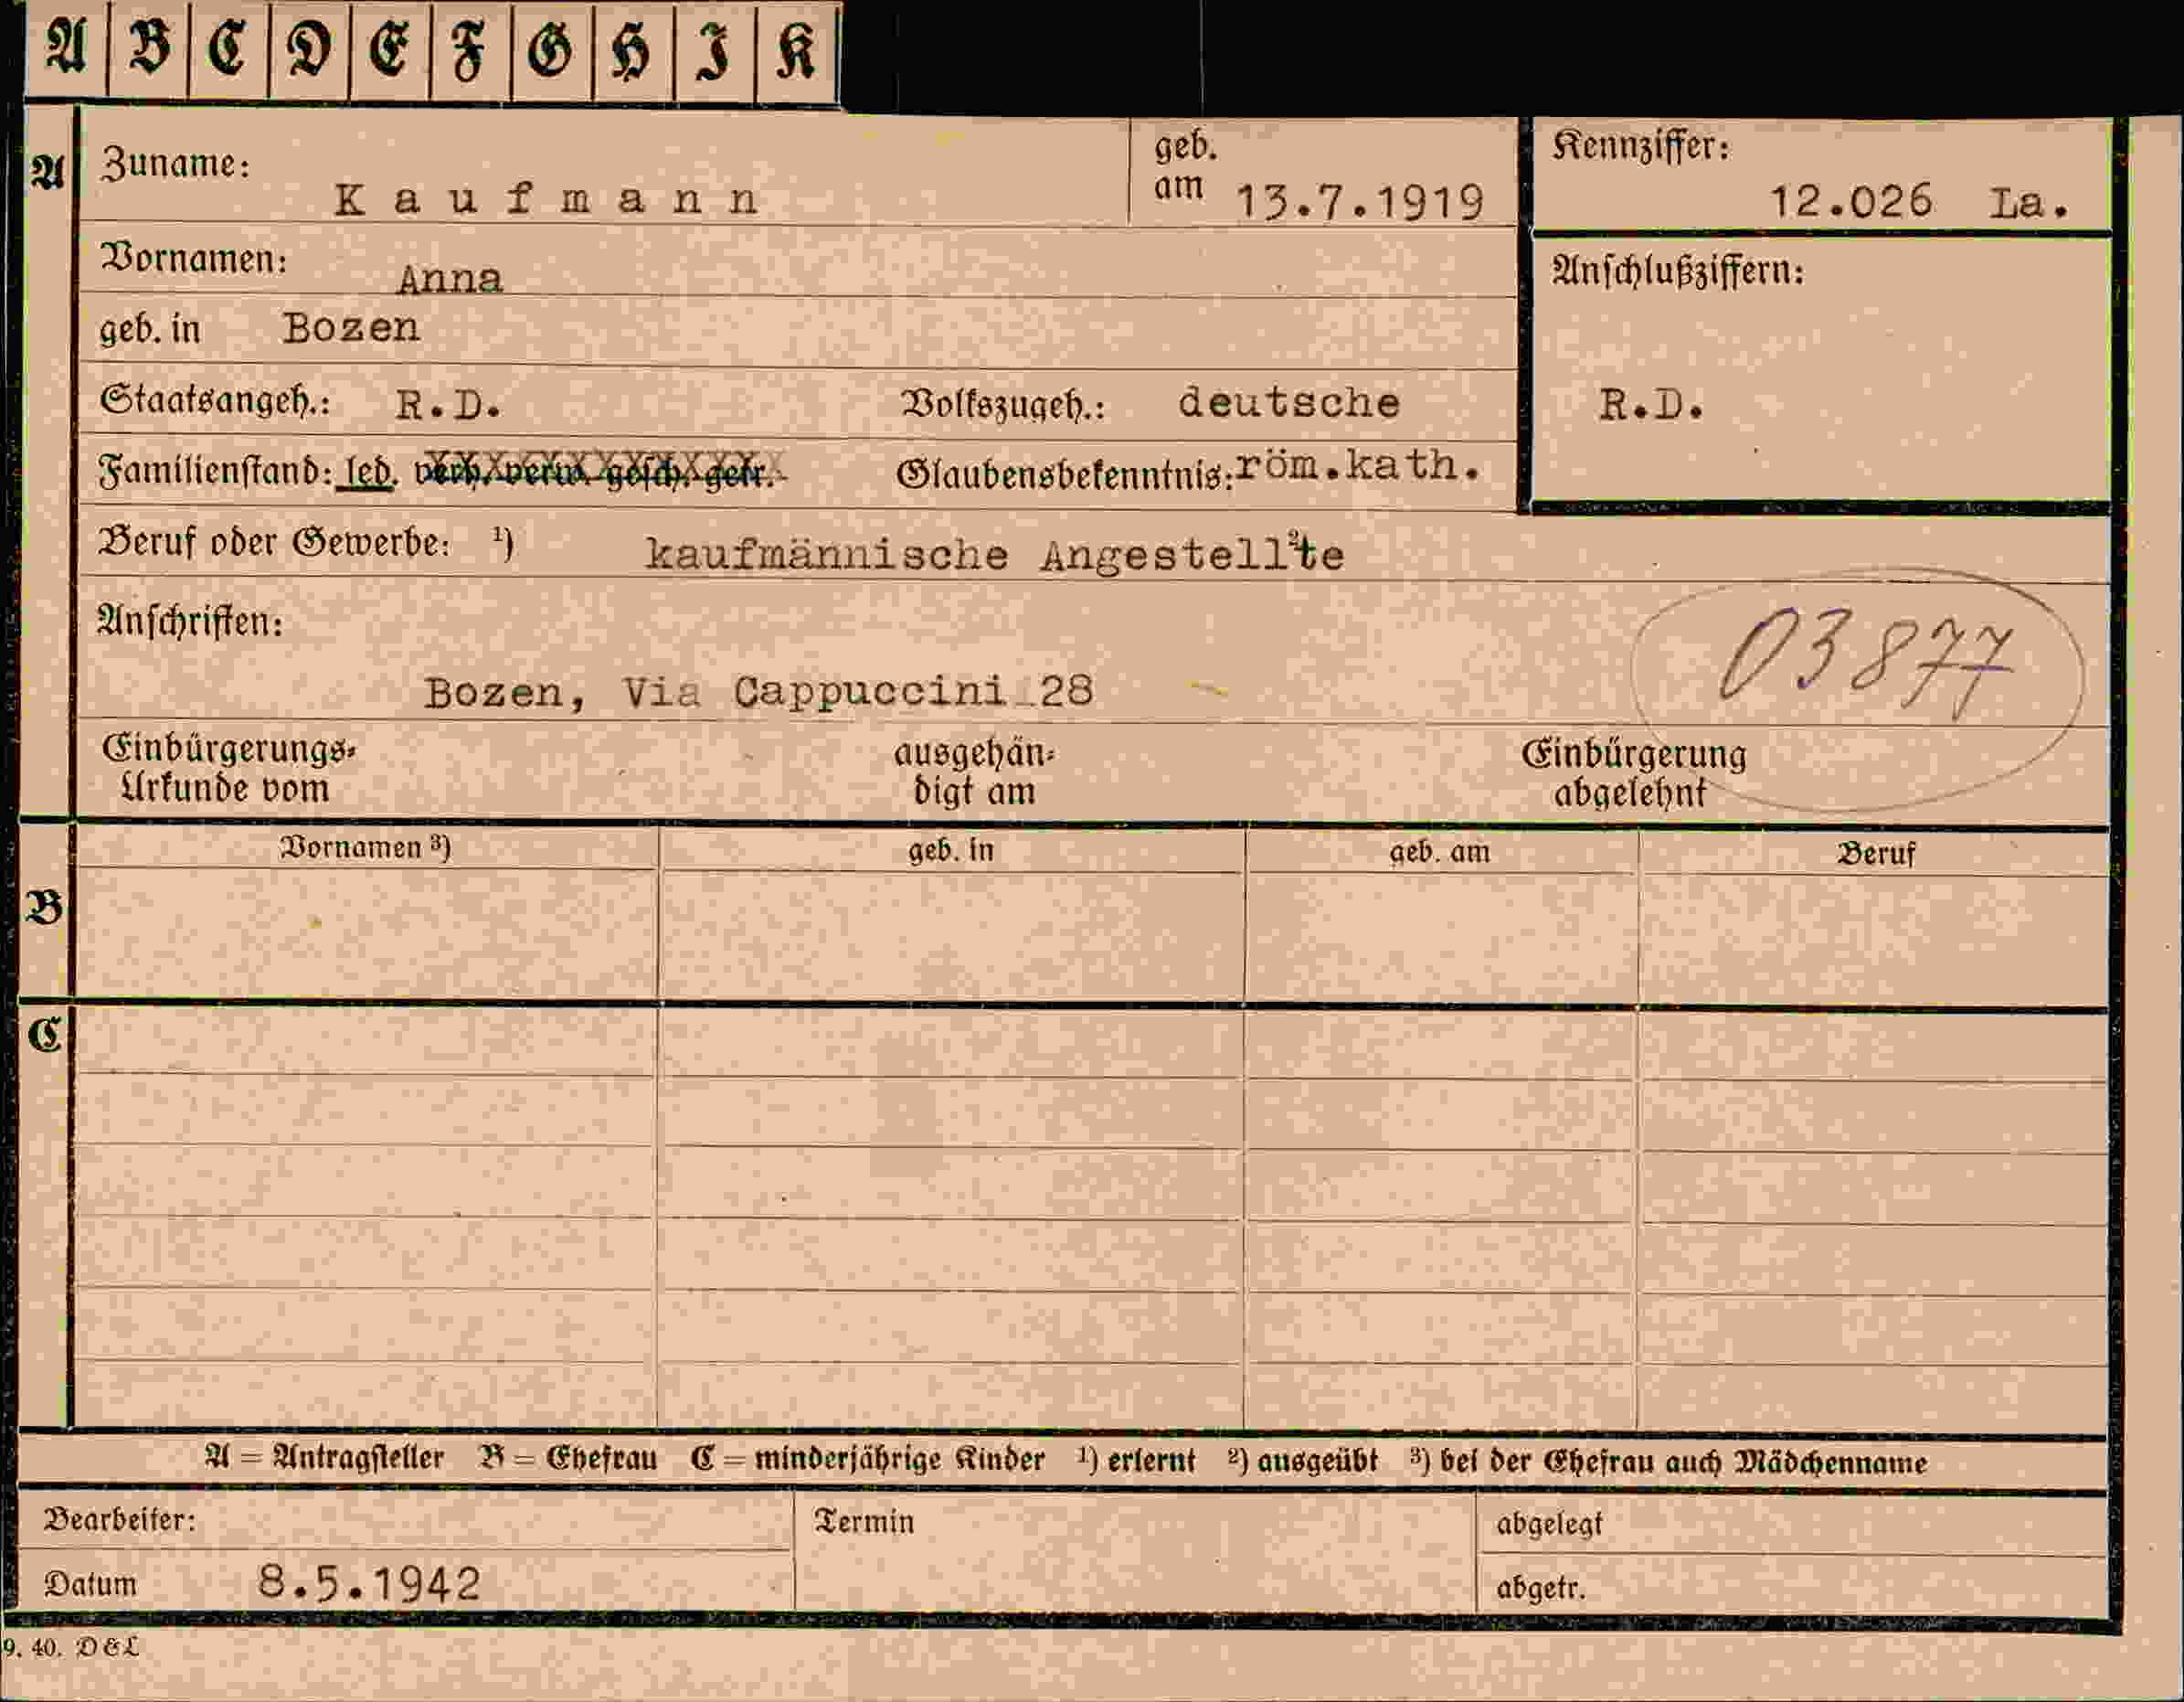 A B C D E F G H I K
A Zuname: Kaufmann geb. am 13.7.1919 Kennziffer: 12.026 La.
Vornamen: Anna Anschlußziffern:
geb. in Bozen
Staatsangeh.: R.D. Volkszugeh.: deutsche R.D.
Familienstand: led. verh. verw. gesch. getr. Glaubensbekenntnis: röm.kath.
Beruf oder Gewerbe: ¹) kaufmännische Angestellte ²)
Anschriften: 03877
Bozen, Via Cappuccini 28
Einbürgerungs- ausgehän- Einbürgerung
Urkunde vom digt am abgelehnt
Vornamen ³) geb. in geb. am Beruf
B
C
A = Antragsteller B = Ehefrau C = minderjährige Kinder ¹) erlernt ²) ausgeübt ³) bei der Ehefrau auch Mädchenname
Bearbeiter: Termin abgelegt
Datum 8.5.1942 abgetr.
9. 40. D&L